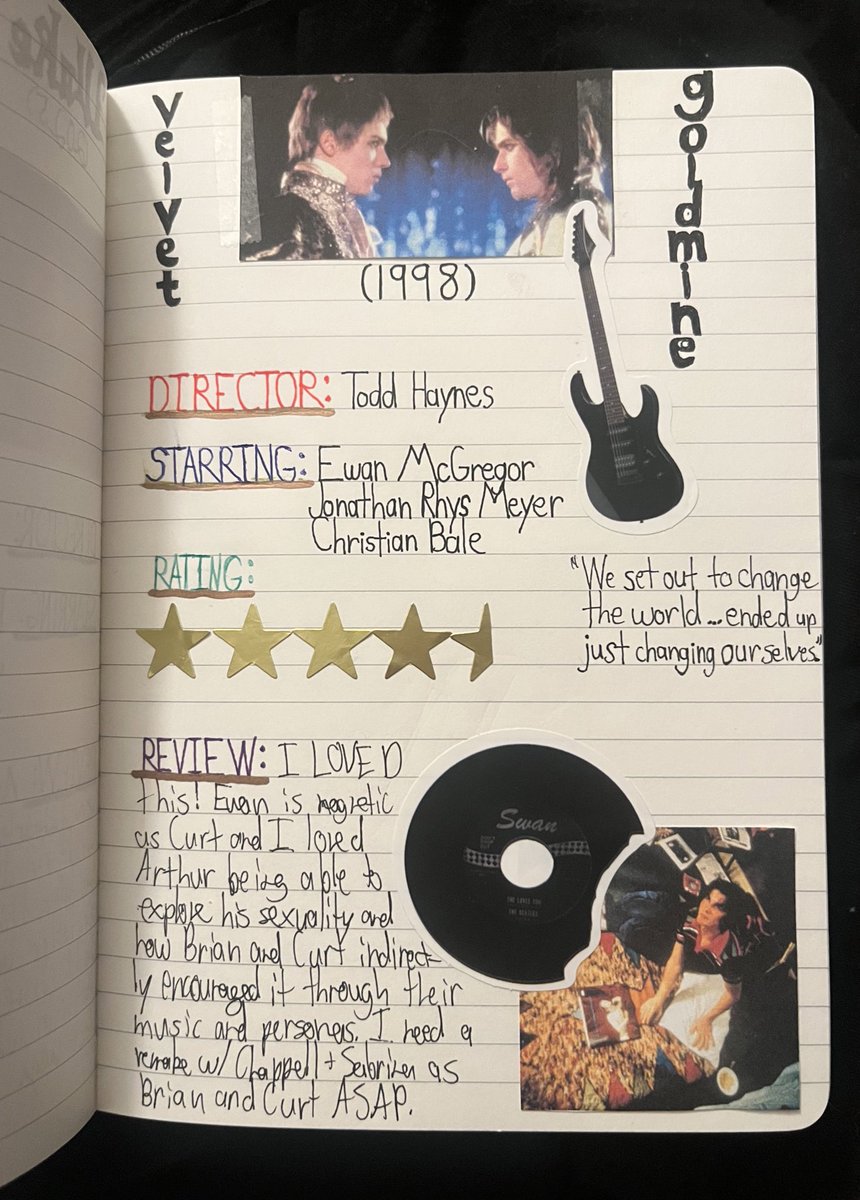 velvet
goldmine
(1998)
DIRECTOR: Todd Haynes
STARRING: Ewan McGregor
Jonathan Rhys Meyer
Christian Bale
RATING:
"We set out to change
the world...ended up
just changing ourselves."
REVIEW: I LOVED
this! Ewan is magnetic
as Curt and I loved
Arthur being able to
explore his sexuality and
how Brian and Curt indirect-
ly encouraged it through their
music and personas. I need a
remake w/ Chappell + Sabrina as
Brian and Curt ASAP.
Swan
SHE LOVES YOU
THE BEATLES